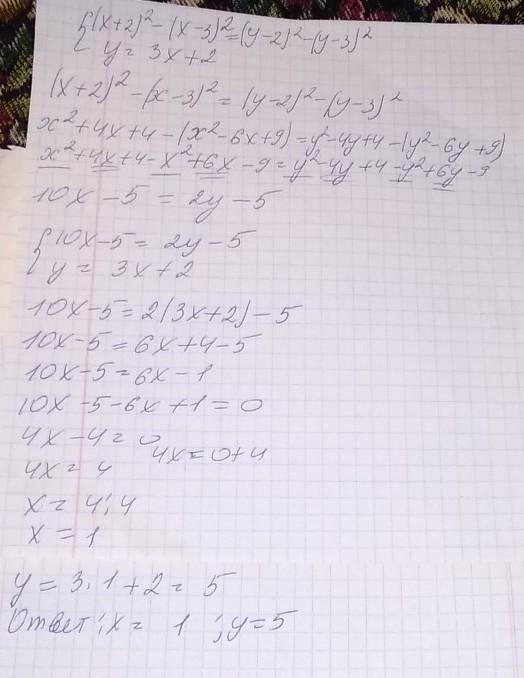 {(x+2)²-(x-3)²=(y-2)²-(y-3)²
y= 3x+2
(x+2)²-(x-3)²= (y-2)²-(y-3)²
x²+4x+4-(x²-6x+9)=y²-4y+4-(y²-6y+9)
x²+4x+4-x²+6x-9=y²-4y+4-y²+6y-9
10x-5=2y-5
{10x-5= 2y-5
y= 3x+2
10x-5=2(3x+2)-5
10x-5=6x+4-5
10x-5=6x-1
10x-5-6x+1=0
4x-4=0
4x=0+4
4x= 4
x= 4:4
x=1
y=3·1+2= 5
Ответ: x= 1 ; y=5